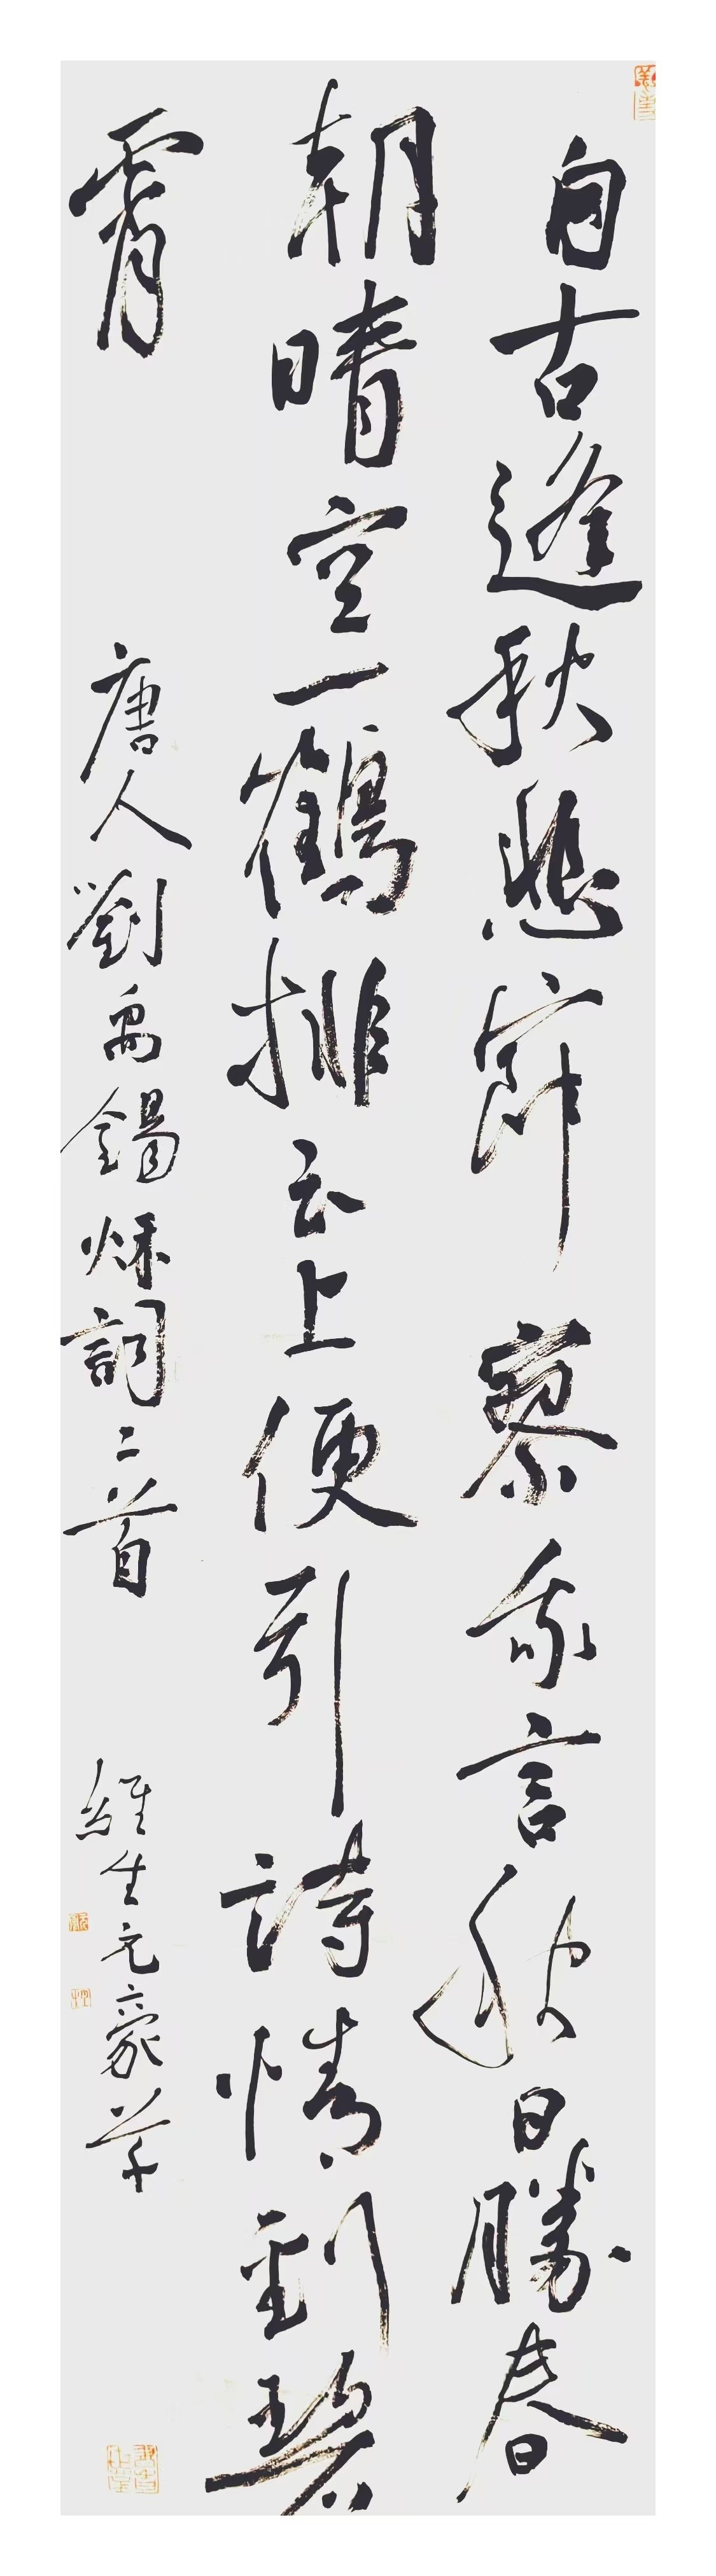 自古逢秋悲寂寥我言秋日勝春
朝晴空一鶴排云上便引詩情到碧
霄
唐人劉禹錫秌詞二首
維生元豪草